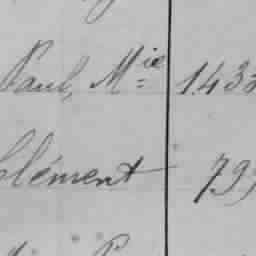 Paul, M^ie 143
Clément 79